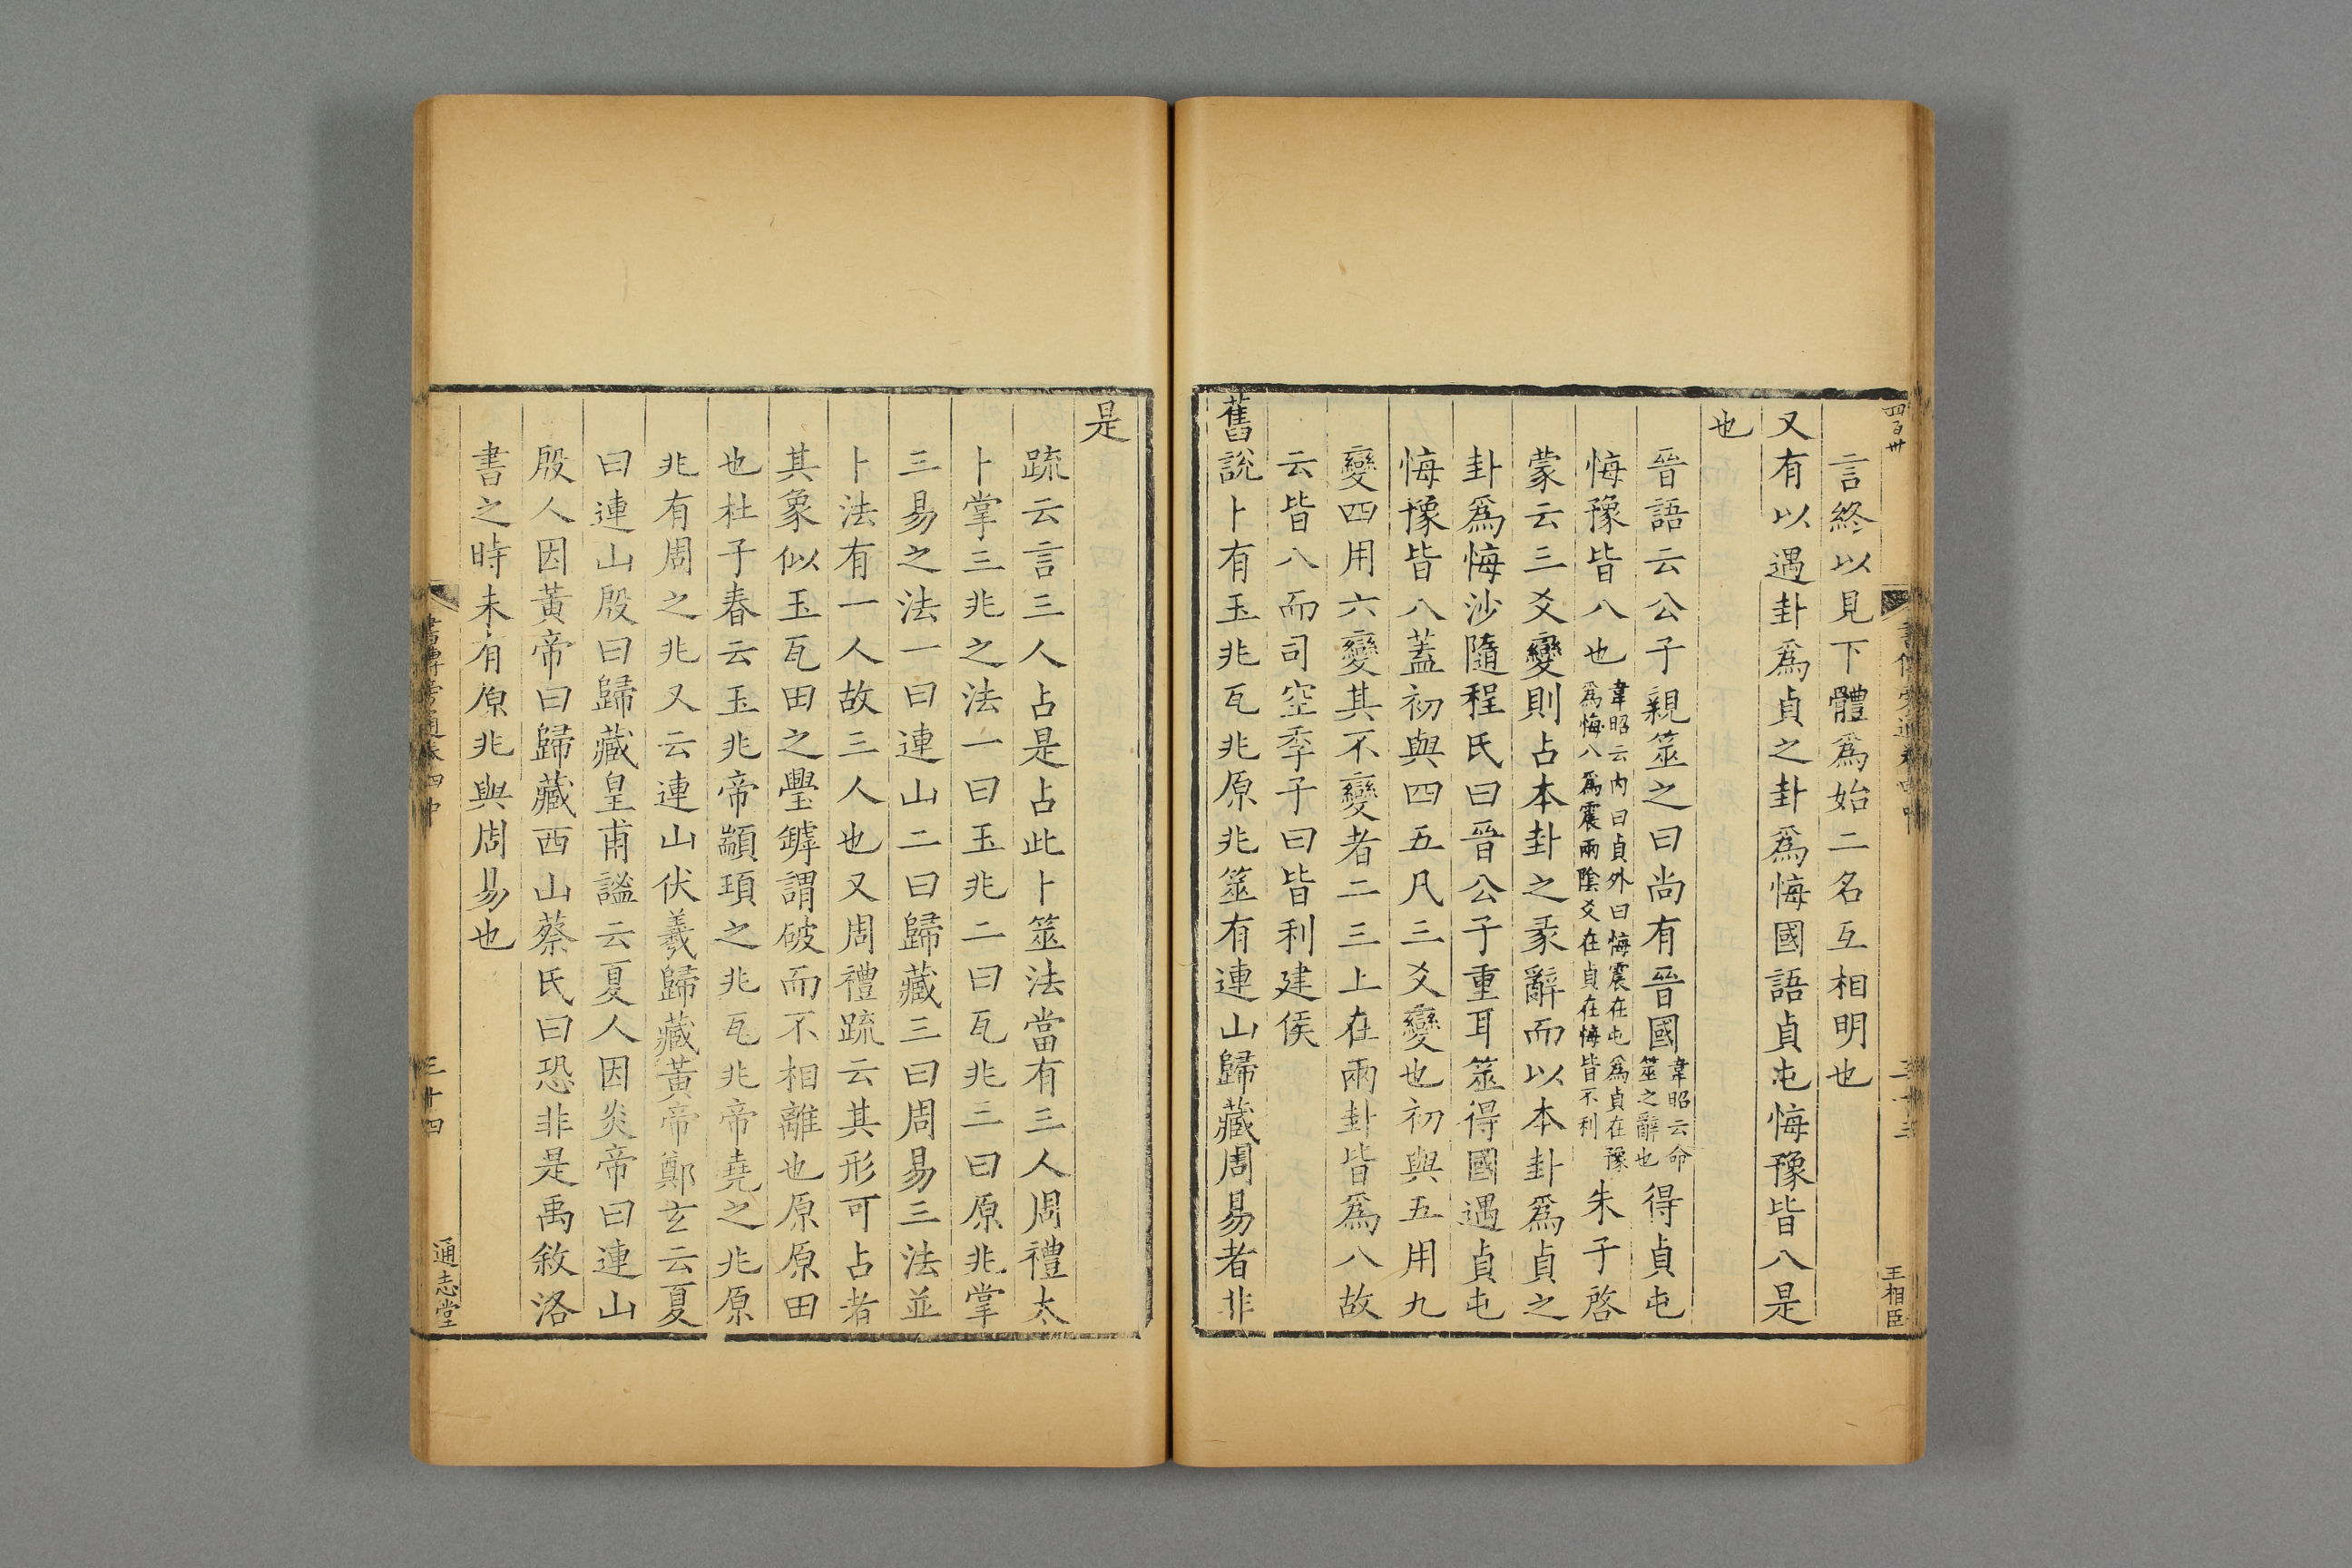 四百卅
王相臣
言終以見下體爲始二名互相明也
又有以遇卦爲貞之卦爲悔國語貞屯悔豫皆八是
也
晉語云公子親筮之曰尚有晉國韋昭云命筮之辭也得貞屯
悔豫皆八也韋昭云內曰貞外曰悔震在屯爲貞在豫爲悔八爲震兩陰爻在貞在悔皆不利朱子啓
蒙云三爻變則占本卦之彖辭而以本卦爲貞之
卦爲悔沙隨程氏曰晉公子重耳筮得國遇貞屯
悔豫皆八蓋初與四五凡三爻變也初與五用九
變四用六變其不變者二三上在兩卦皆爲八故
云皆八而司空季子曰皆利建侯
舊說卜有玉兆瓦兆原兆筮有連山歸藏周易者非
是
疏云言三人占是占此卜筮法當有三人周禮太
卜掌三兆之法一曰玉兆二曰瓦兆三曰原兆掌
三易之法一曰連山二曰歸藏三曰周易三法並
卜法有一人故三人也又周禮疏云其形可占者
其象似玉瓦田之璺罅謂破而不相離也原原田
也杜子春云玉兆帝顓頊之兆瓦兆帝堯之兆原
兆有周之兆又云連山伏羲歸藏黃帝鄭玄云夏
曰連山殷曰歸藏皇甫謐云夏人因炎帝曰連山
殷人因黃帝曰歸藏西山蔡氏曰恐非是禹敘洛
書之時未有原兆與周易也
三十四
通志堂